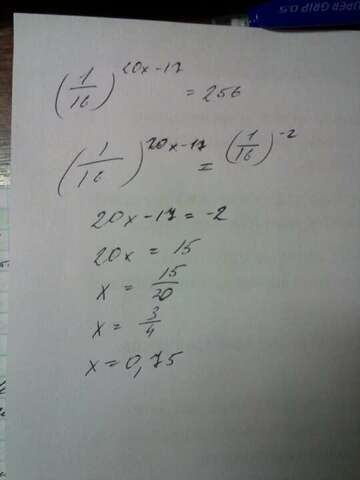 SUPER GRIP 0.5
(1/16)^20x-17 = 256
(1/16)^20x-17 = (1/16)^-2
20x-17 = -2
20x = 15
x = 15/20
x = 3/4
x = 0,75